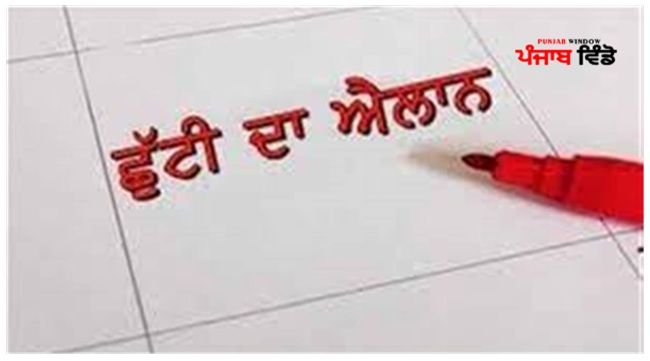 PUNJAB WINDOW
ਪੰਜਾਬ ਵਿੰਡੋ
ਛੁੱਟੀ ਦਾ ਐਲਾਨ